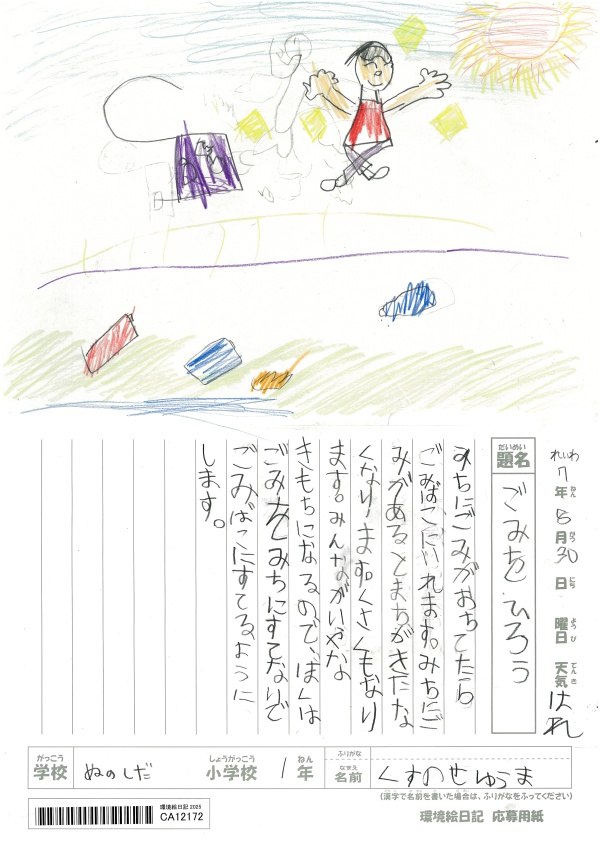 れいわ7年8月30日 曜日 天気 はれ
ねん がつ にち ようび てんき
だいめい
題名 ごみをひろう
みちにごみがおちてたら
ごみばこにいれます。みちにご
みがあるとまちがきたな
くなります。くさくもなり
ます。みんながいやな
きもちになるので、ぼくは
ごみをみちにすてないで
ごみばこにすてるように
します。
がっこう しょうがっこう ねん
学校 ぬのしだ 小学校 1年
ふりがな
なまえ
名前 くすのせゆうま
(漢字で名前を書いた場合は、ふりがなをふってください)
環境絵日記 2025
CA12172
環境絵日記 応募用紙